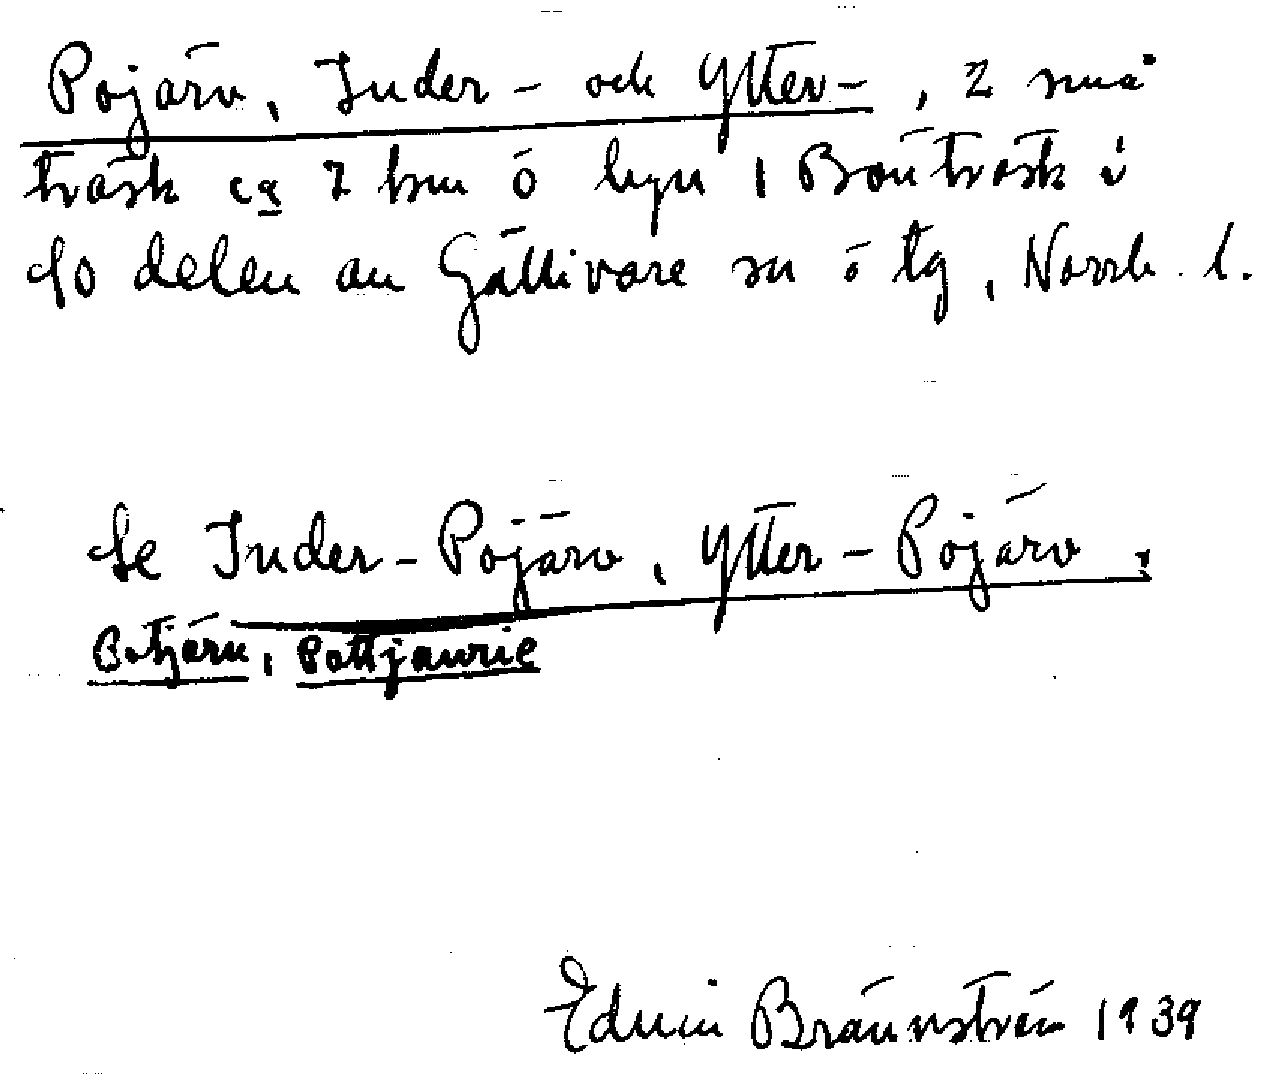 Pojärv, Inder- och Ytter-, 2 små
träsk ca 2 km ö byn 1 Bönträsk i
So delen av Gällivare sn ö tg, Norrb. l.
Se Inder-Pojärv, Ytter-Pojärv,
Potjärv, Pottjaurie
Edvin Brännström 1939